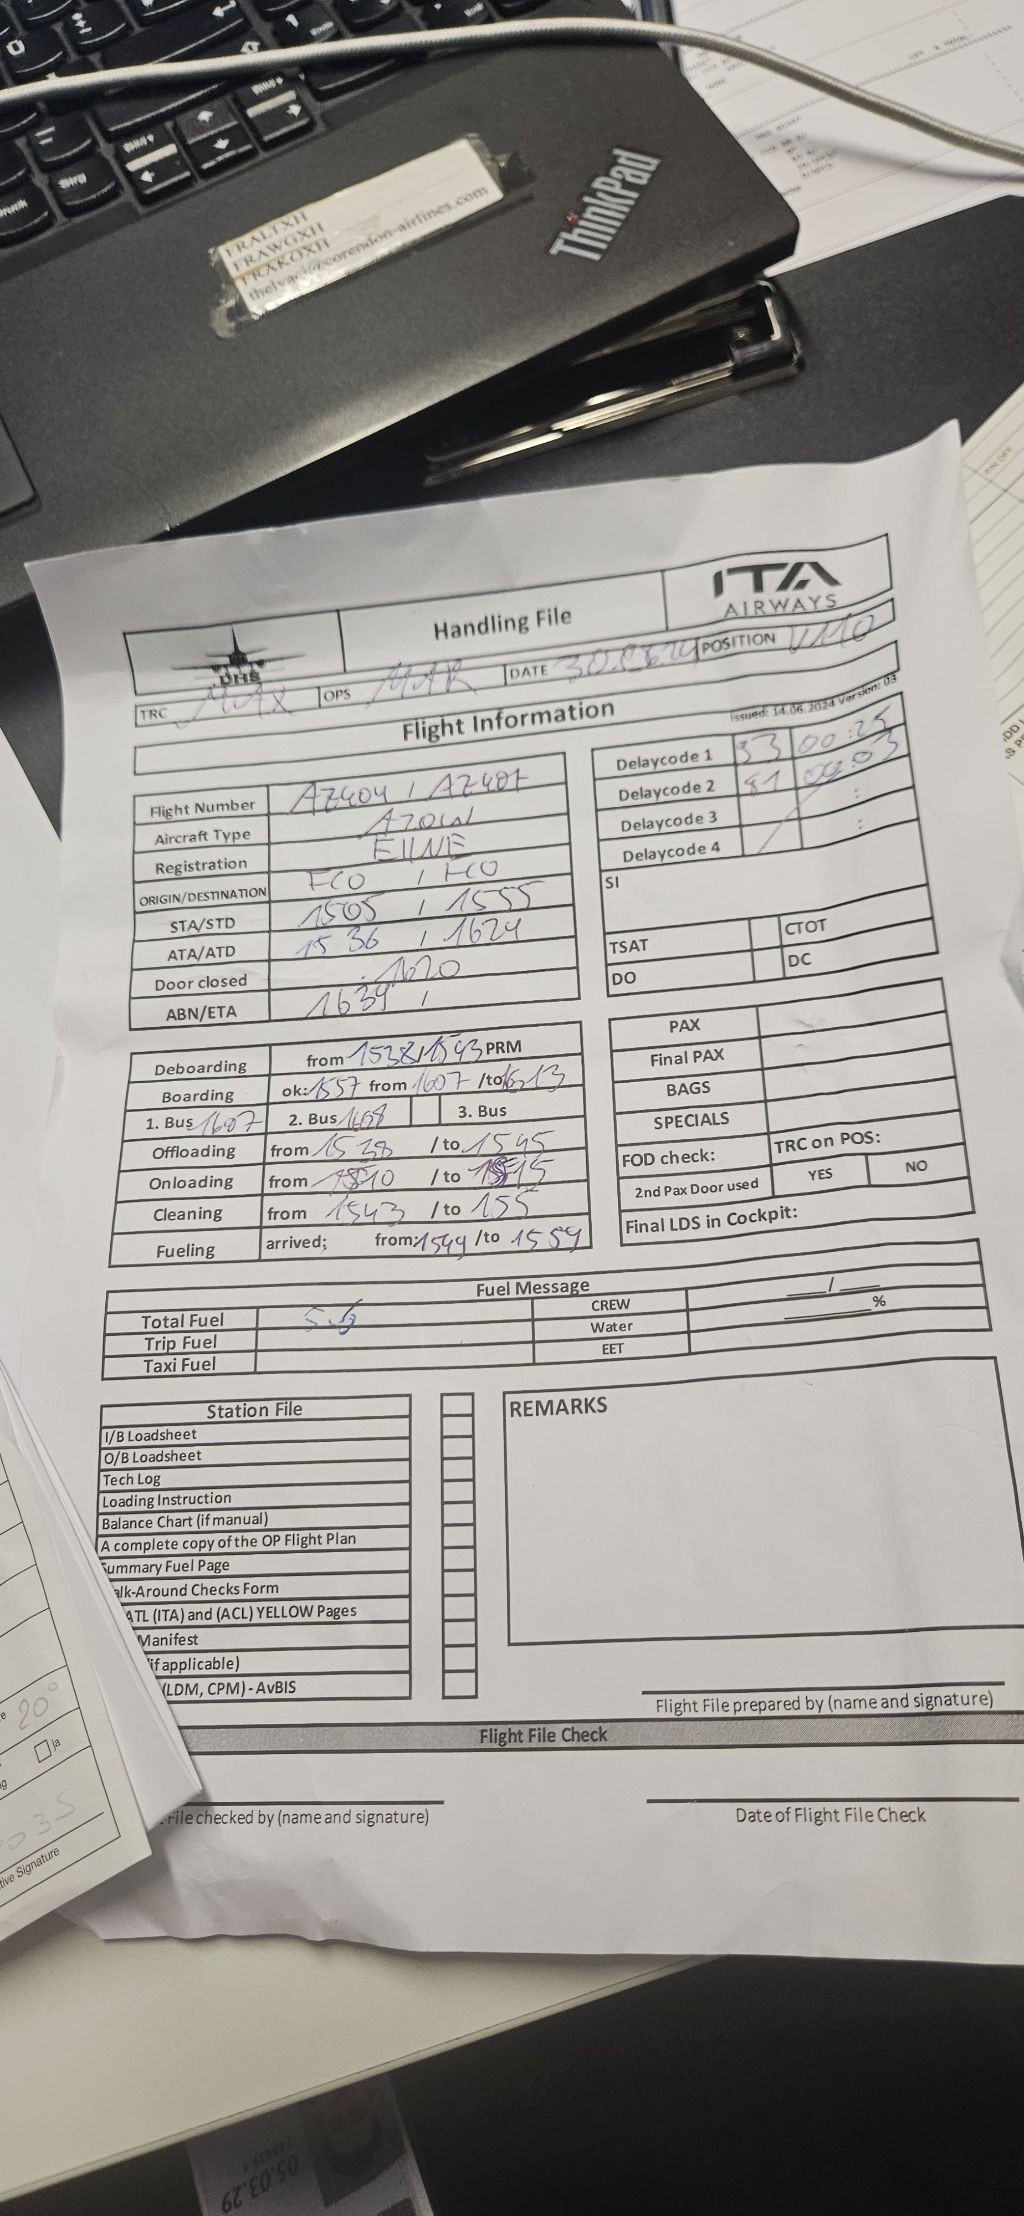 ThinkPad
FRALTXH
FRAWGXH
FRAKOXH
@corendon-airlines.com
DHS
Handling File
ITA
AIRWAYS
TRC MAX OPS MAR DATE POSITION V110
Flight Information
Issued: 14.06.2024 Version: 03
Flight Number AZ404 / AZ407
Aircraft Type
Registration EIINE
ORIGIN/DESTINATION FCO / FCO
STA/STD 1505 / 1555
ATA/ATD 1536 / 1624
Door closed : 1620
ABN/ETA 1634 /
Delaycode 1 93 00:25
Delaycode 2 81 00:03
Delaycode 3 :
Delaycode 4 :
SI
TSAT CTOT
DO DC
Deboarding from 1538/1543 PRM
Boarding ok: 1557 from 1607 /to 1613
1. Bus 1607 2. Bus 3. Bus
Offloading from 1538 /to 1545
Onloading from /to
Cleaning from 1543 /to 155
Fueling arrived; from: 1549 /to 1559
PAX
Final PAX
BAGS
SPECIALS
FOD check: TRC on POS:
2nd Pax Door used YES NO
Final LDS in Cockpit:
Fuel Message
Total Fuel CREW /
Trip Fuel Water %
Taxi Fuel EET
Station File
I/B Loadsheet
O/B Loadsheet
Tech Log
Loading Instruction
Balance Chart (if manual)
A complete copy of the OP Flight Plan
ummary Fuel Page
alk-Around Checks Form
ATL (ITA) and (ACL) YELLOW Pages
Manifest
if applicable)
(LDM, CPM) - AvBIS
REMARKS
Flight File prepared by (name and signature)
Flight File Check
File checked by (name and signature)
Date of Flight File Check
20°
ja
035
tive Signature
05.03.29